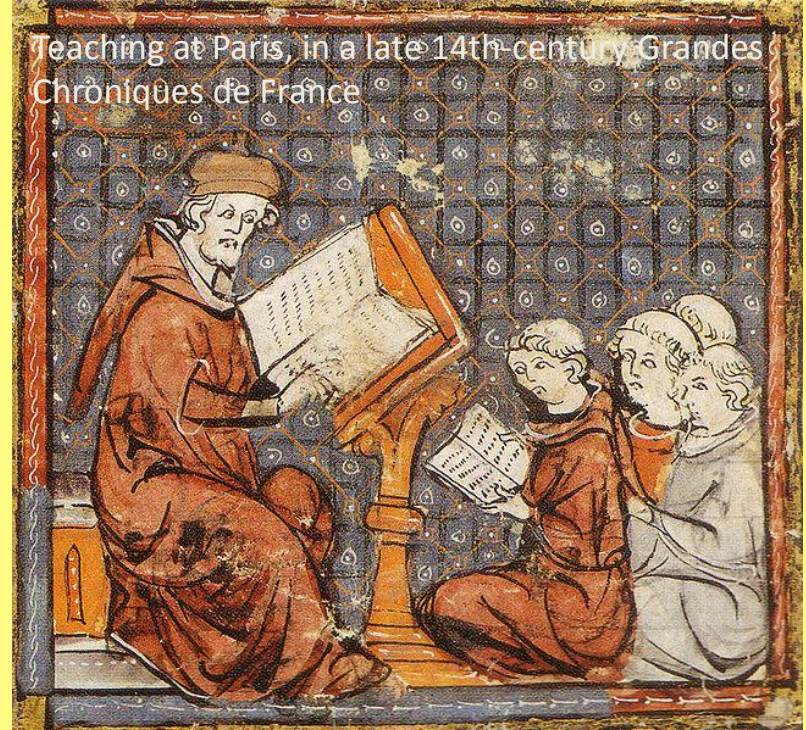 Teaching at Paris, in a late 14th-century Grandes
Chroniques de France